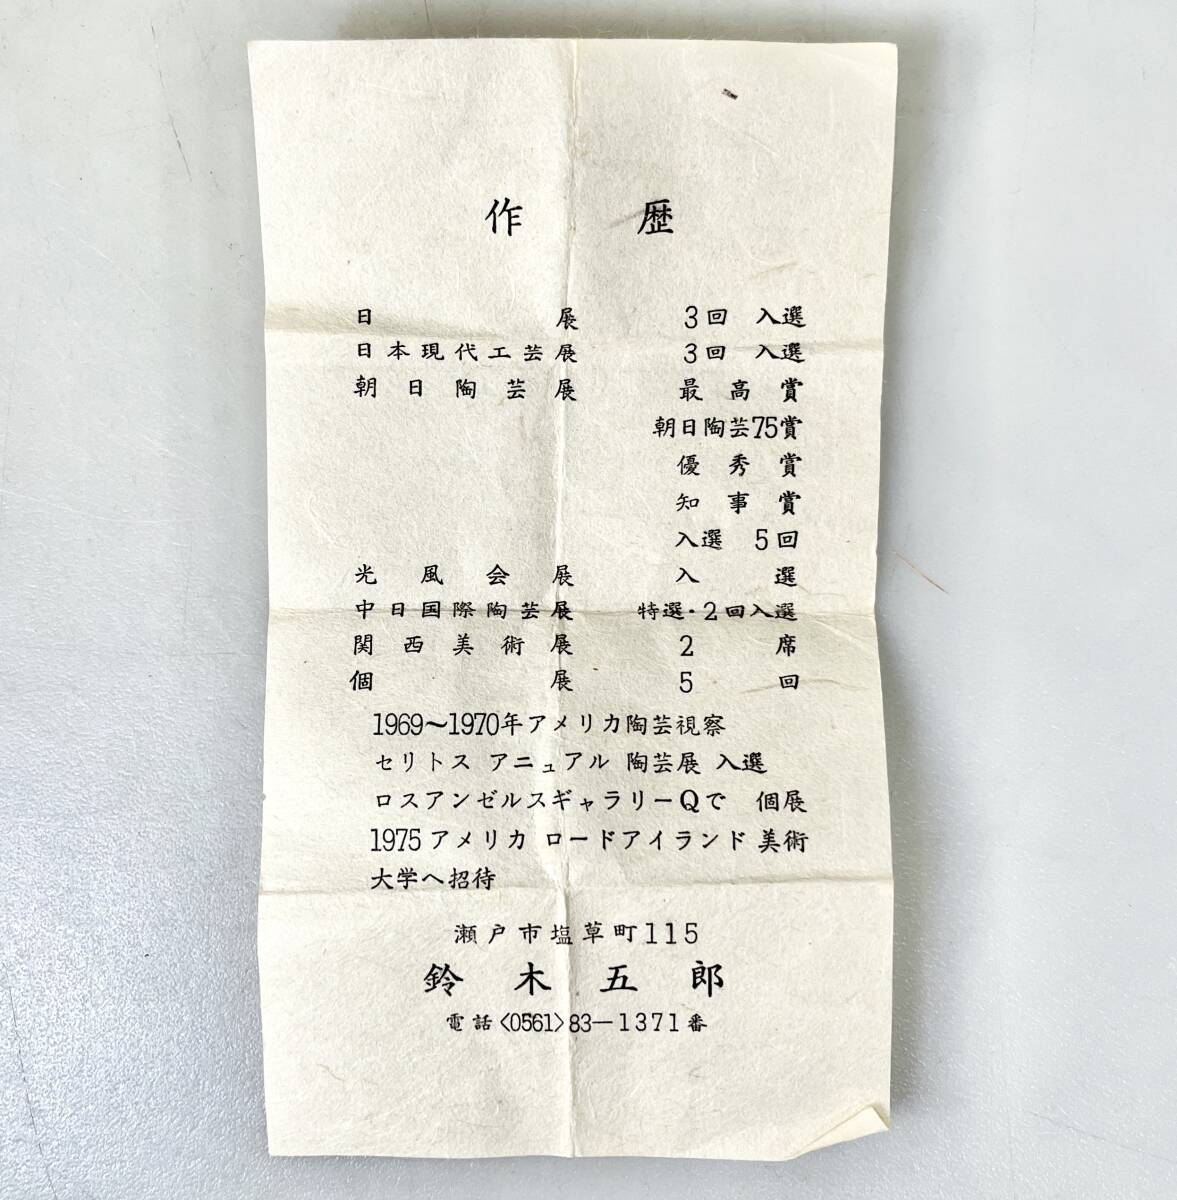 作歴
日展 3回 入選
日本現代工芸展 3回 入選
朝日陶芸展 最高賞
朝日陶芸75賞
優秀賞
知事賞
入選 5回
光風会展 入選
中日国際陶芸展 特選・2回入選
関西美術展 2席
個展 5回
1969〜1970年アメリカ陶芸視察
セリトス アニュアル 陶芸展 入選
ロスアンゼルスギャラリーQで 個展
1975アメリカ ロードアイランド美術
大学へ招待
瀬戸市塩草町115
鈴木五郎
電話<0561>83—1371番